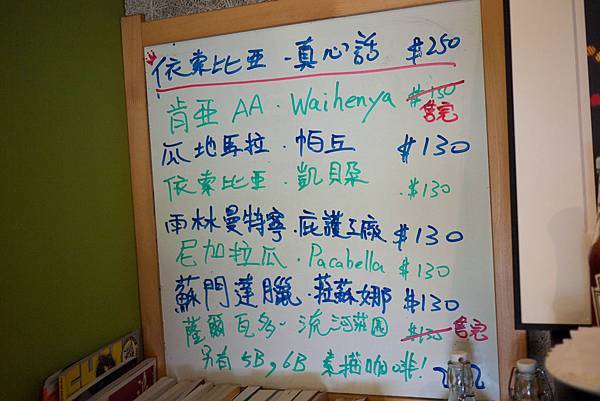 依索比亞 - 真心話 $250
肯亞 AA · Waihenya $150 售完
瓜地馬拉 · 帕丘 $130
依索比亞 · 凱貝朶 $130
雨林曼特寧 · 庇護工廠 $130
尼加拉瓜 · Pacabella $130
蘇門達臘 · 菈蘇娜 $130
薩爾瓦多 - 流河莊園 $130 售完
另有 5B, 6B 素描咖啡!